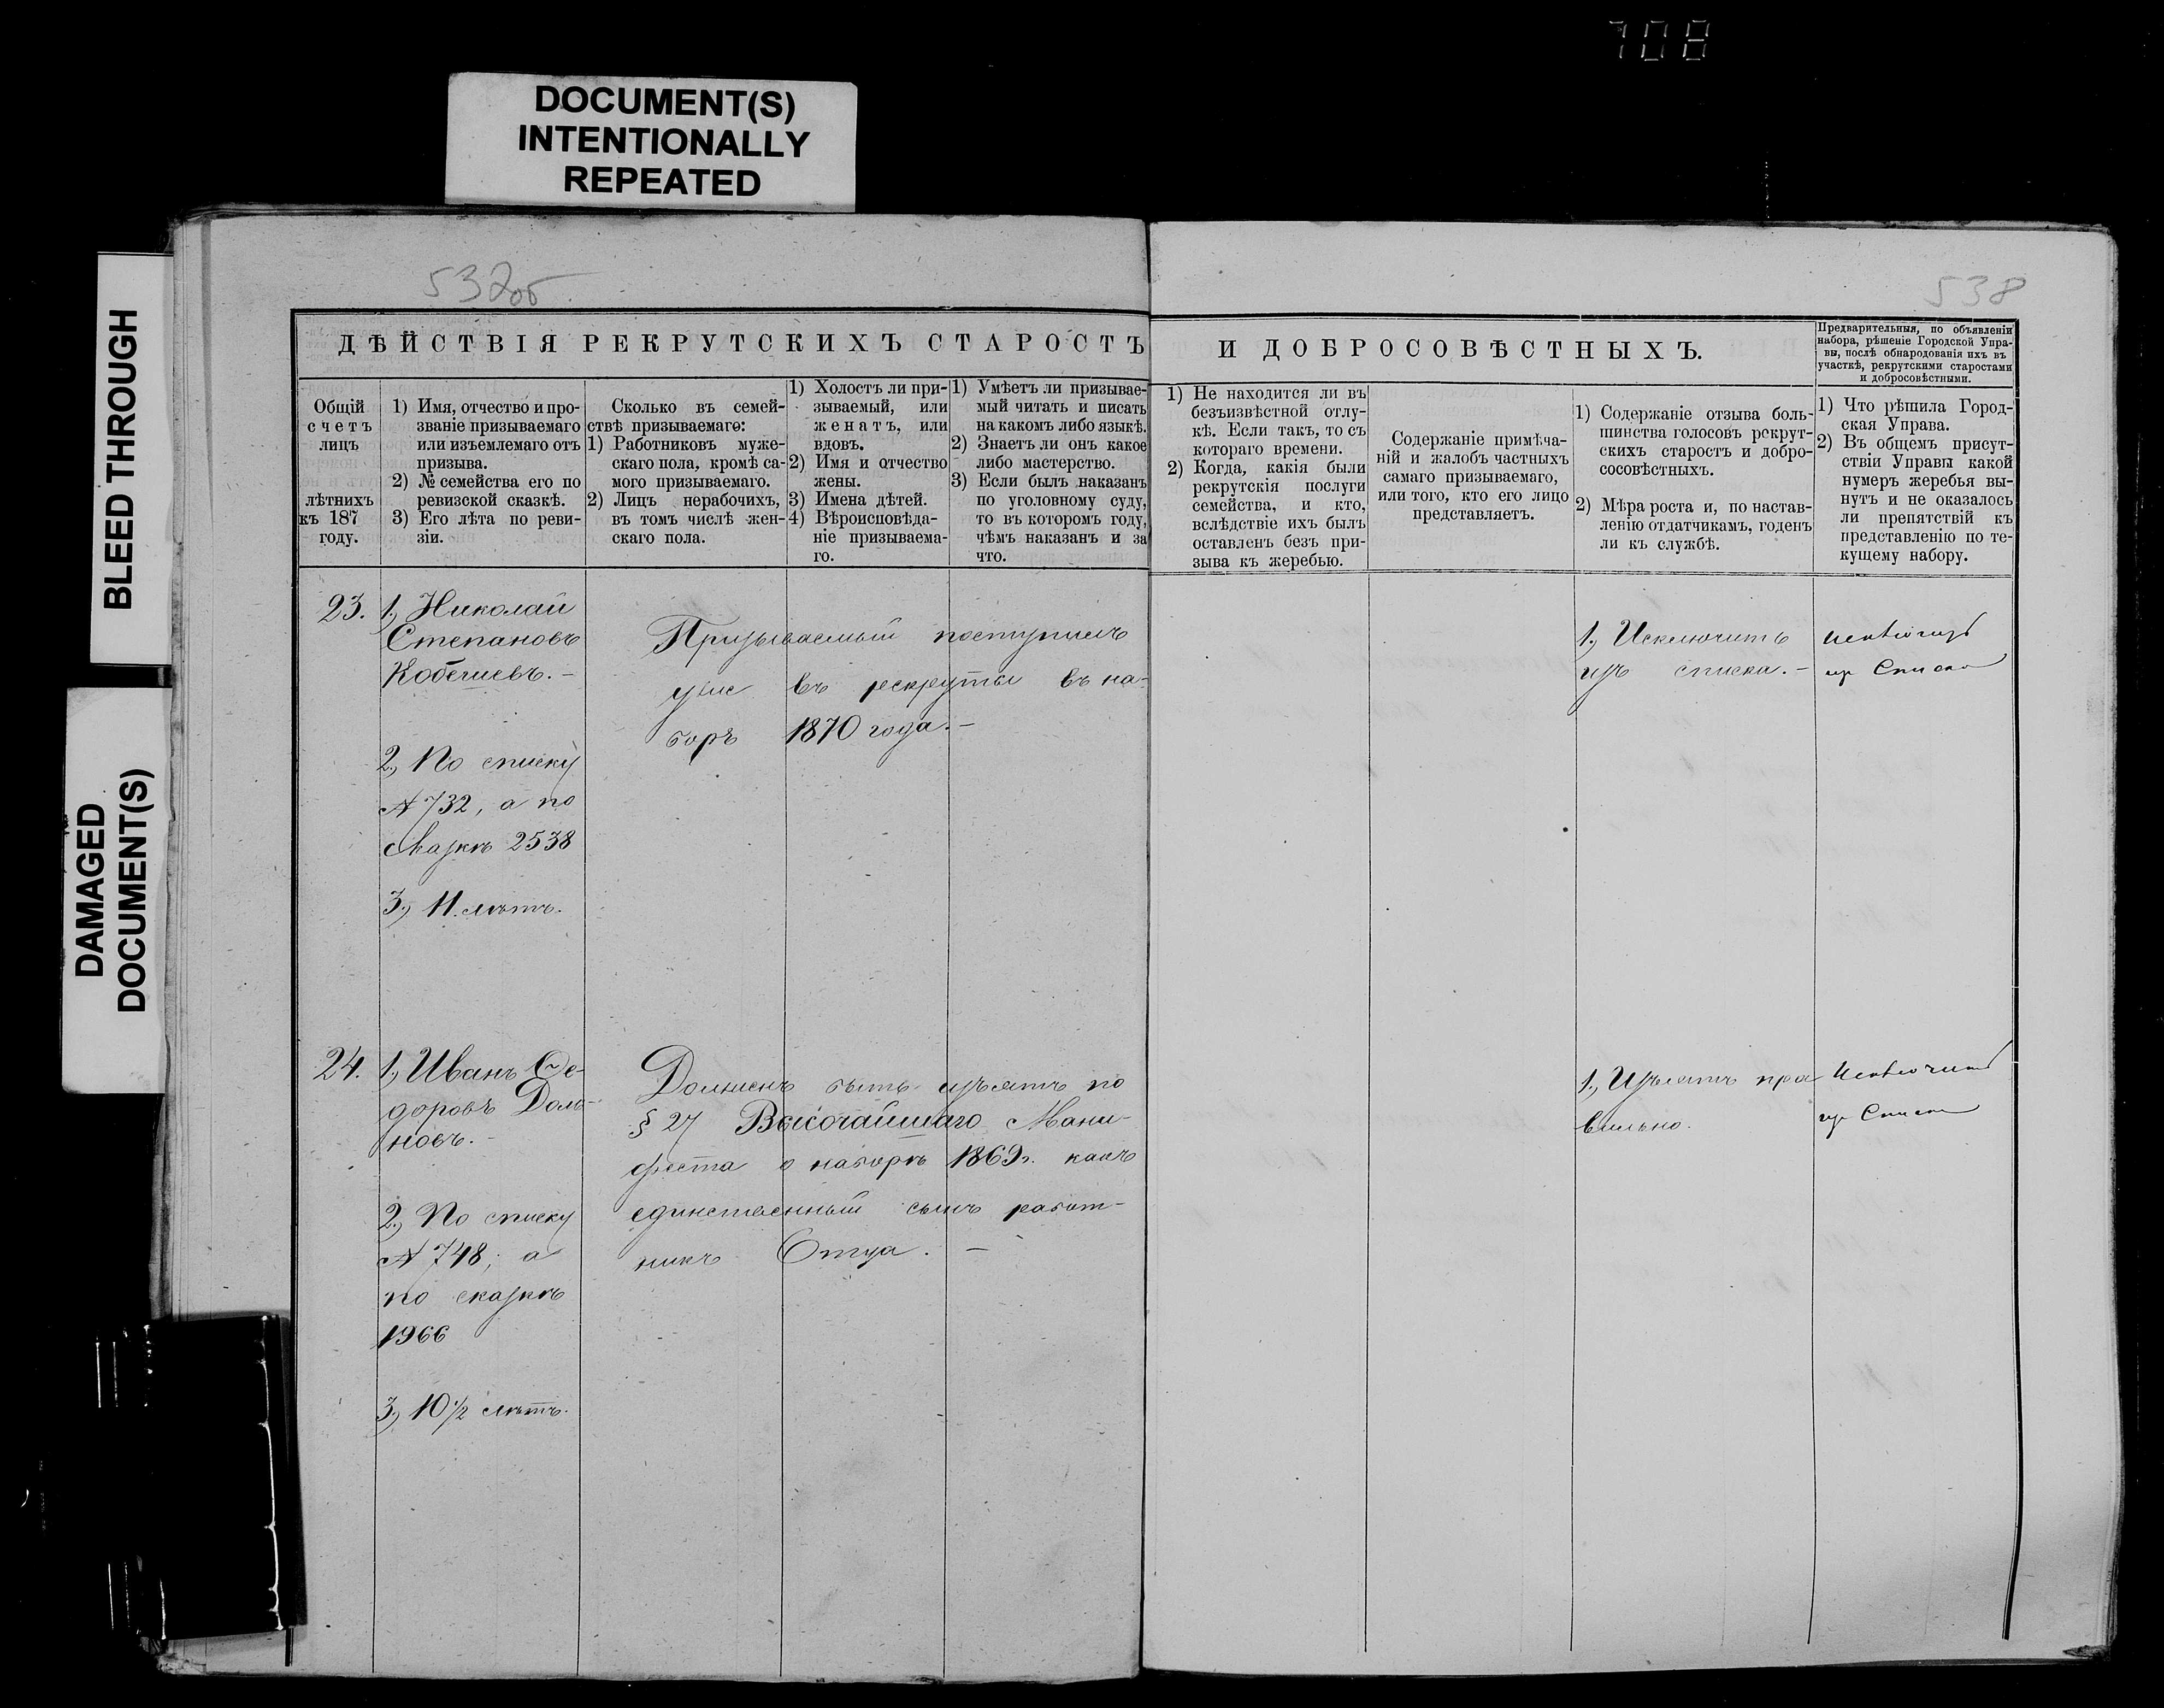 708
DOCUMENT(S)
INTENTIONALLY
REPEATED
BLEED THROUGH
DAMAGED
DOCUMENT(S)
532об
538
ДѢЙСТВІЯ РЕКРУТСКИХЪ СТАРОСТЪ
И ДОБРОСОВѢСТНЫХЪ.
Предварительныя, по объявленіи
набора, рѣшеніе Городской Упра-
вы, послѣ обнародованія ихъ въ
участкѣ, рекрутскими старостами
и добросовѣстными.
Общій
счетъ
лицъ
лѣтнихъ
къ 187
году.
1) Имя, отчество и про-
званіе призываемаго
или изъемлемаго отъ
призыва.
2) № семейства его по
ревизской сказкѣ.
3) Его лѣта по реви-
зіи.
Сколько въ семей-
ствѣ призываемаго:
1) Работниковъ муже-
скаго пола, кромѣ са-
мого призываемаго.
2) Лицъ нерабочихъ,
въ томъ числѣ жен-
скаго пола.
1) Холостъ ли при-
зываемый, или
женатъ, или
вдовъ.
2) Имя и отчество
жены.
3) Имена дѣтей.
4) Вѣроисповѣда-
ніе призываема-
го.
1) Умѣетъ ли призывае-
мый читать и писать
на какомъ либо языкѣ.
2) Знаетъ ли онъ какое
либо мастерство.
3) Если былъ наказанъ
по уголовному суду,
то въ которомъ году,
чѣмъ наказанъ и за
что.
1) Не находится ли въ
безъизвѣстной отлу-
кѣ. Если такъ, то съ
котораго времени.
2) Когда, какія были
рекрутскія послуги
семейства, и кто,
вслѣдствіе ихъ былъ
оставленъ безъ при-
зыва къ жеребью.
Содержаніе примѣча-
ній и жалобъ частныхъ
самаго призываемаго,
или того, кто его лицо
представляетъ.
1) Содержаніе отзыва боль-
шинства голосовъ рекрут-
скихъ старостъ и добро-
сосовѣстныхъ.
2) Мѣра роста и, по настав-
ленію отдатчикамъ, годенъ
ли къ службѣ.
1) Что рѣшила Город-
ская Управа.
2) Въ общемъ присут-
ствіи Управы какой
нумеръ жеребья вы-
нутъ и не оказалось
ли препятствій къ
представленію по те-
кущему набору.
23. 1., Николай
Степановъ
2., По списку
№ 732, а по
сказкѣ 2538
3., 11 лѣтъ.
Призываемый поступилъ
уже въ рекруты въ на-
боръ 1870 года. —
1., Исключить
изъ списка. —
Исключить
изъ Списка
24. 1., Иванъ Ѳе-
доровъ Доль-
новъ. —
2., По списку
№ 748, а
по сказкѣ
1966
3., 10½ лѣтъ.
Долженъ быть изъятъ по
§ 27 Высочайшаго Мани-
феста о наборѣ 1869 г. какъ
единственный сынъ работ-
никъ Отца. —
1., Изъятъ пра-
вильно.
Исключить
изъ Списка